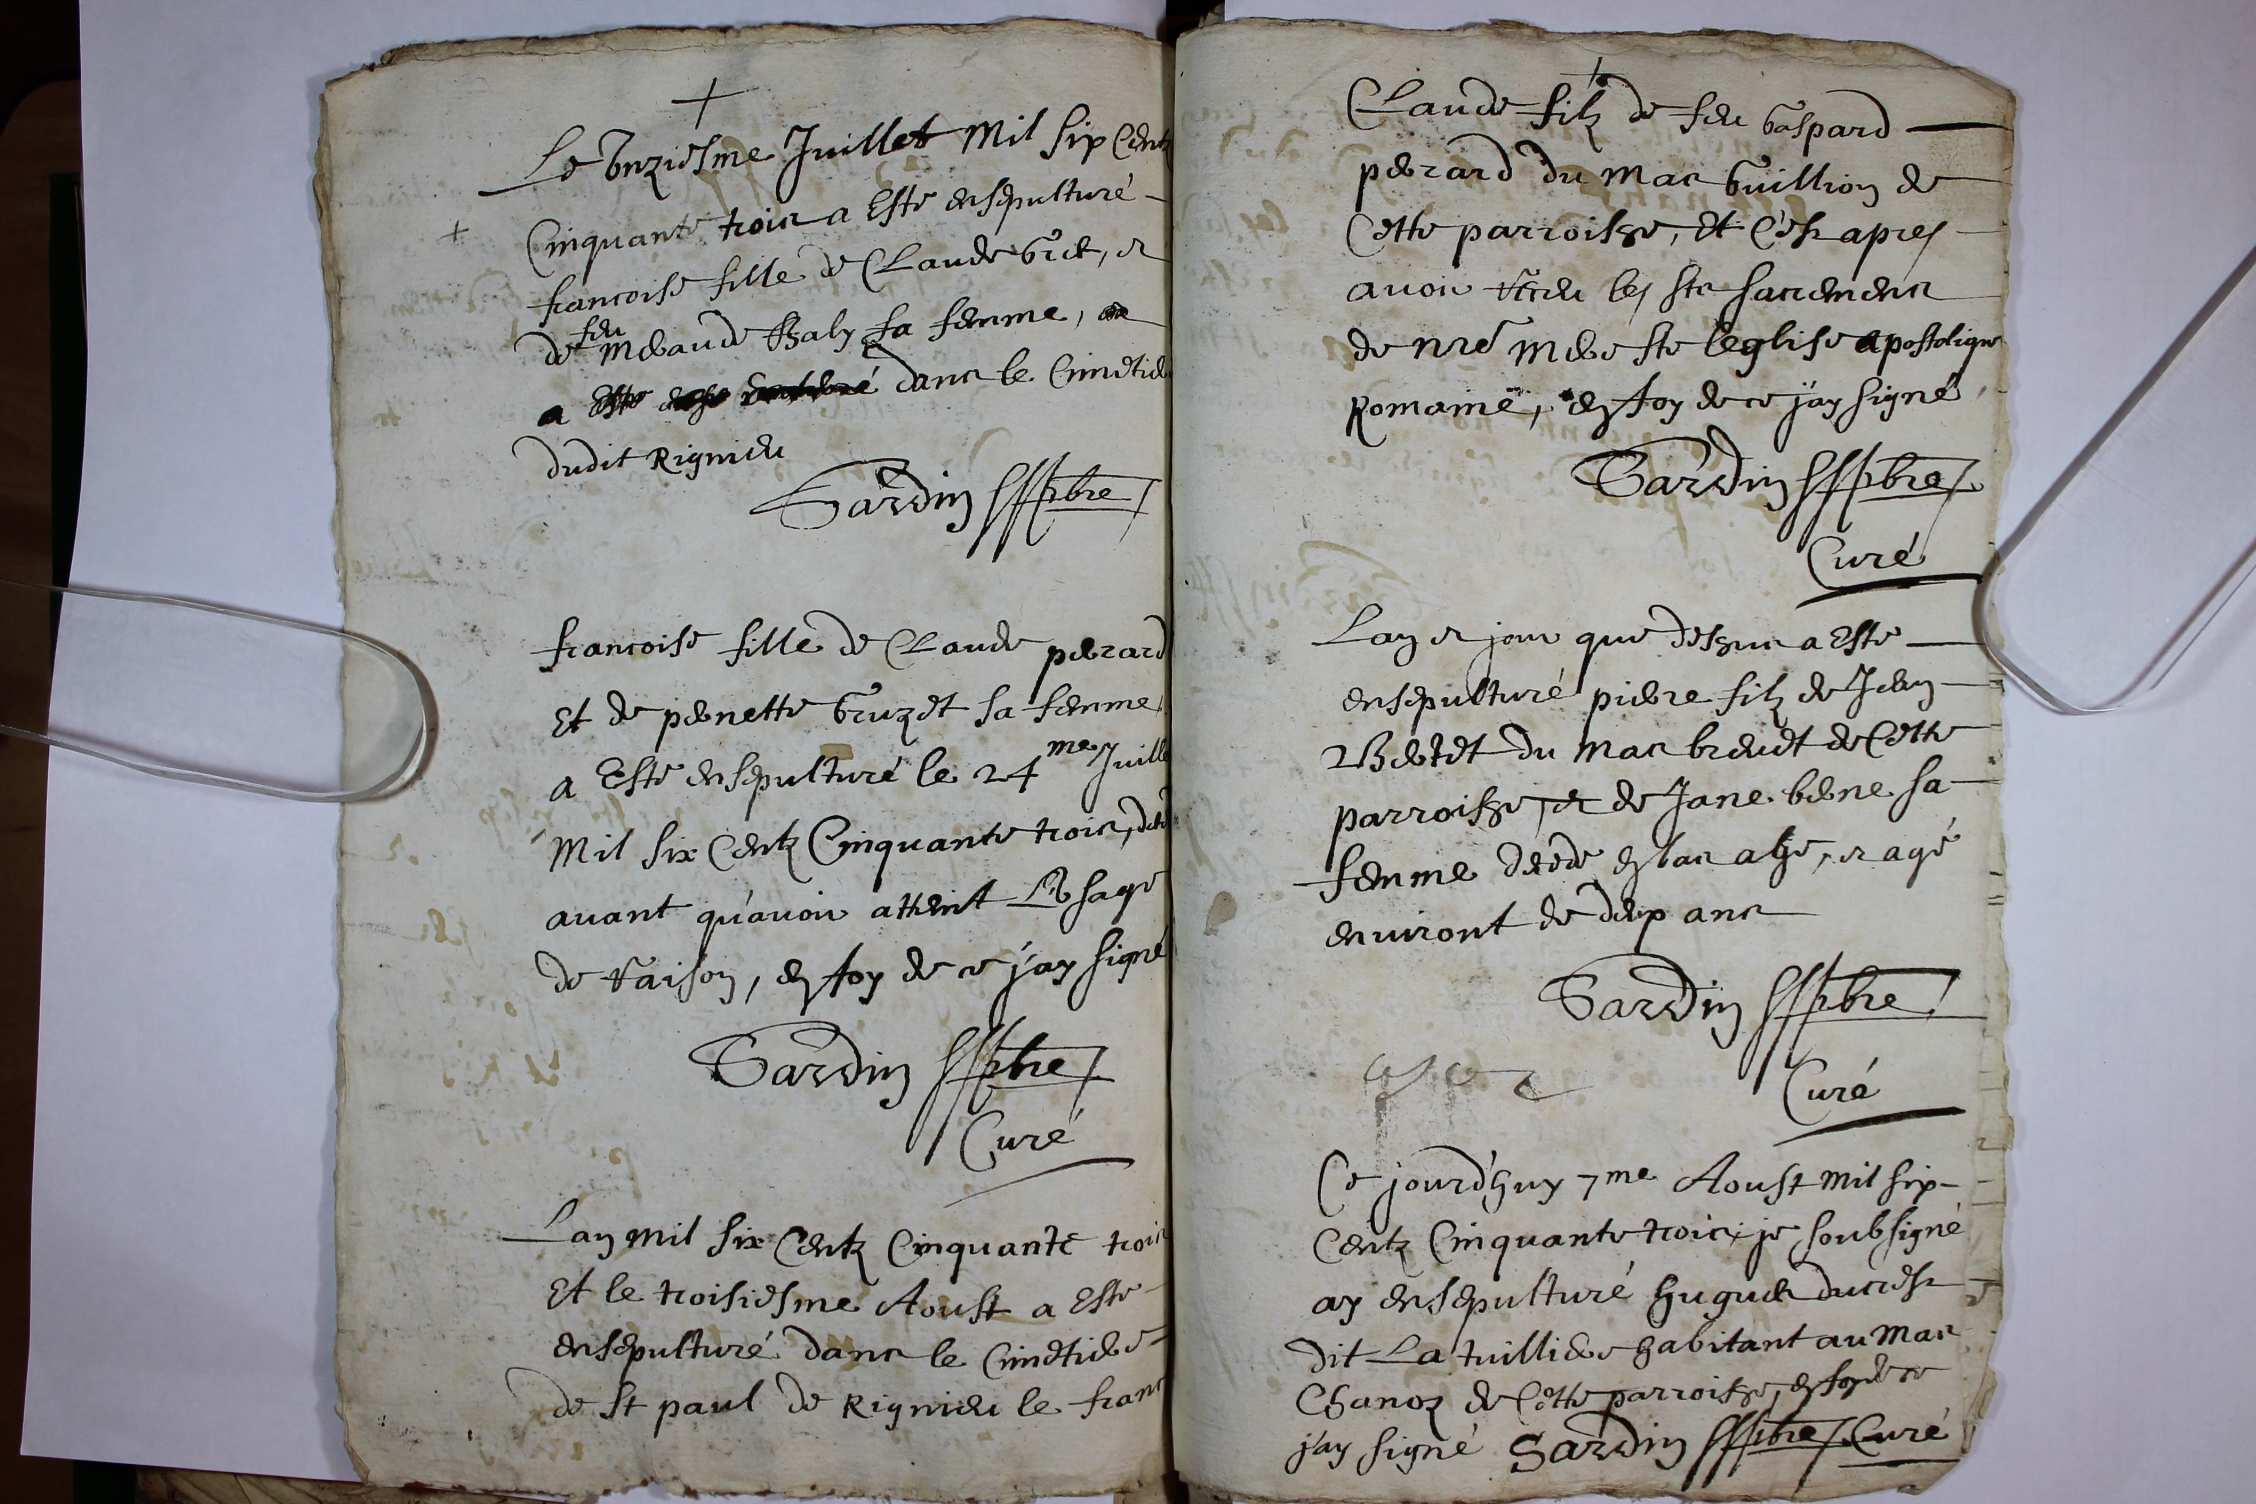 Le Unziesme Juillet Mil six Centz
Cinquante trois a Esté ensepulturé
francoise fille de Claude Gret, et
de feu Mieaude Baly sa femme,
a Esté dans le Cimetiere
dudit Rignieu
Sardin pbre
francoise fille de Claude perard
Et de pernette Gruzet sa femme
a Esté ensepulturé le 24me Juille
Mil six Centz Cinquante trois,
avant qu'avoir atteint L'usage
de raison, en foy de ce j'ay signé
Sardin pbre
Curé
Lan Mil six Centz Cinquante trois
Et le troisiesme Aoust a Esté
ensepulturé dans le Cimetiere
de St paul de Rignieu le franc
Claude filz de feu Gaspard
perard du Mas Guillion de
Cette parroisse, Et C'est apres
avoir receu les sts sacremens
de nre Mere ste leglise apostolique
Romaine, en foy de ce j'ay signé
Sardin pbre
Curé
Lan et jour que dessus a Esté
ensepulturé pierre filz de Jean
du Mas brevet de Cette
parroisse, et de Jane bene sa
femme decedé en bas aage, et agé
environt de deux ans
Sardin pbre
Curé
Ce jourd'huy 7me Aoust Mil six
Centz Cinquante trois, je soubsigné
ay ensepulturé hugues ducrest
dit La tuilliere habitant au Mas
Chanoz de Cette parroisse, en foy de ce
j'ay signé Sardin pbre Curé